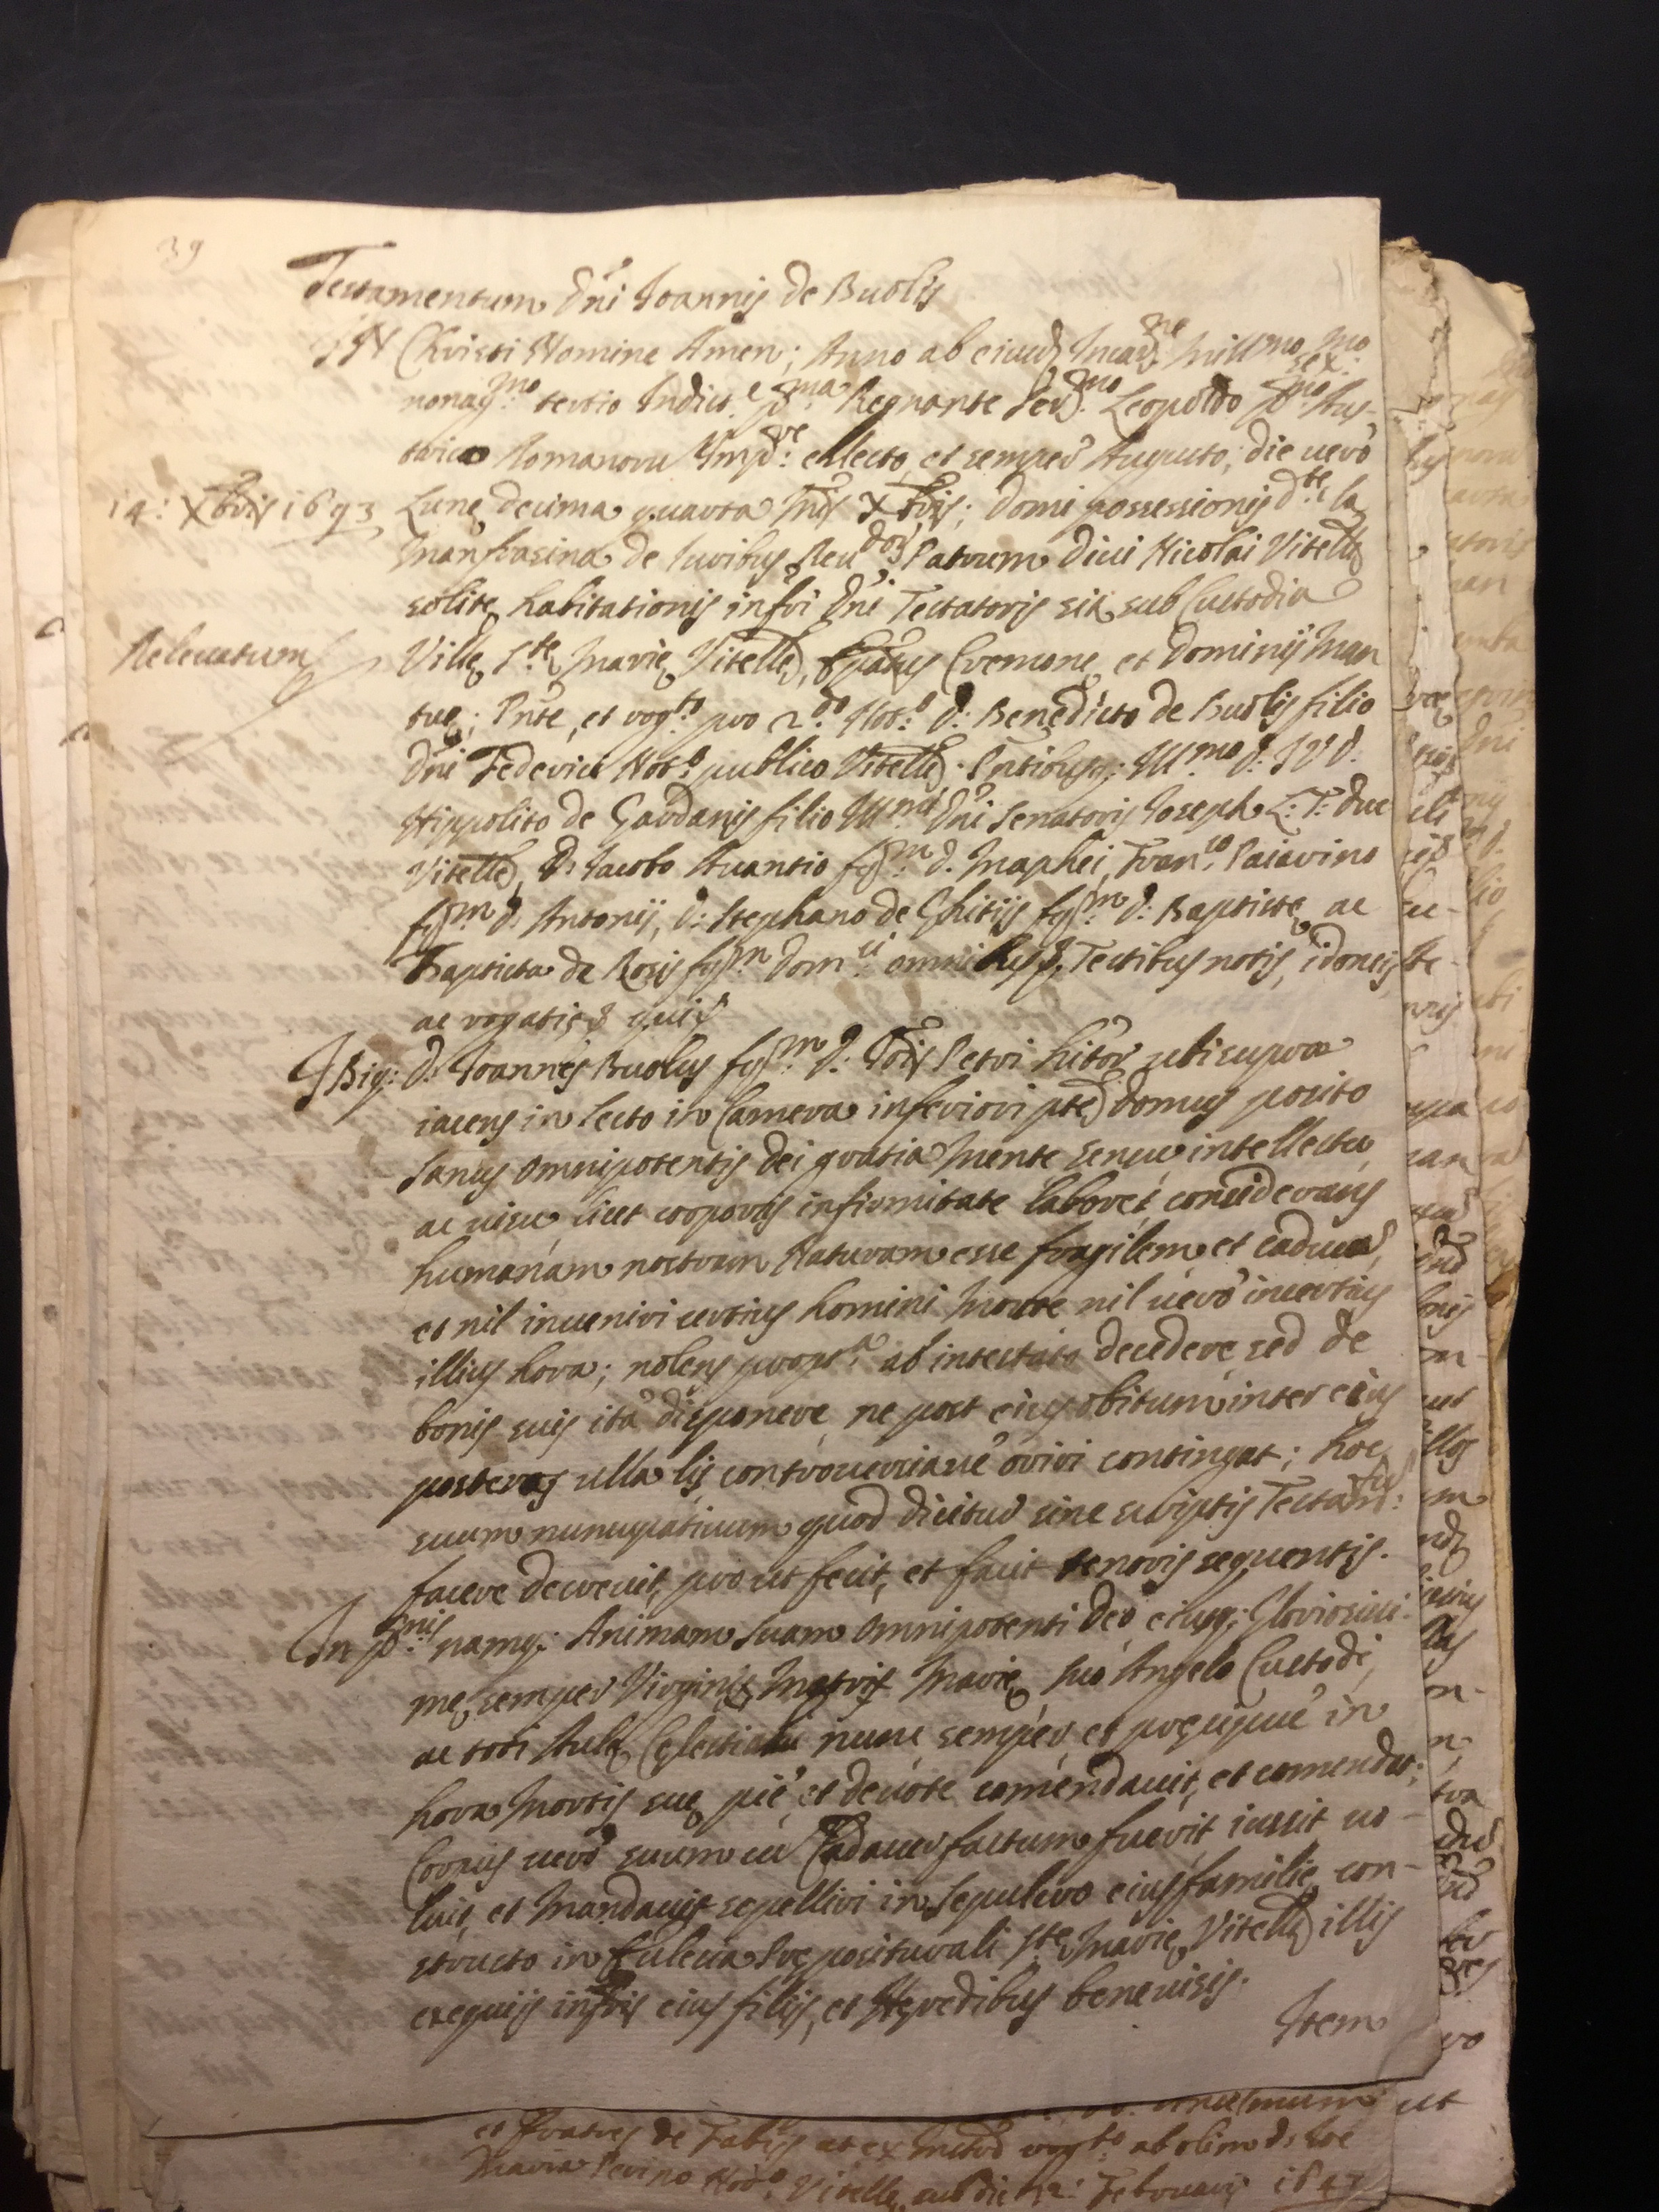 39
Testamentum Dñi Joannis de Buolis
IN Christi Nomine Amen; Anno ab eiusd. Incar.ne mill.mo sex.mo
nonag.mo tertio Indict.e p.ma Regnante Ser.mo Leopoldo p.mo Aus-
triaco Romanorū Imp.re ellecto, et semper Augusto; die uero
14: Xbris 1693 Lunę decima quarta m̃s Xbris; domi possessionis d.te la
de Iuribus Reu.dor Patrum Diui Nicolai Vitellę
solitę habitationis infr̃i Dñi Testatoris sita sub Custodia
Releuatum Villę S.tę Marię Vitellę, Ep̃atus Cremonę, et Dominij Man
tuę; Pñte, et rog.to pro 2.do Not.o D: Benedicto de Buolis filio
Dñi Federici Not.o publico Vitellę. Pñtibusq; Ill.mo D: IVD.
Hippolito de Gardanis filio Ill.mi Dñi Senatoris Joseph L: T: due
Vitellę, D: Jacobo Auantio fq.m D. Maphei, Fran.co Paiarino
fq.m D. Antonij, D: Stephano de Ghitijs fq.m D: Baptistę ac
Baptista de Rosis fq.m Dom.ci omnibus Testibus notis, idoneis
ac rogatis
Ibiq: D: Joannes Buolus fq.m D. Jois Petri hitõr ubi supra
iacens in lecto in Camera inferiori ptę domus posito
Sanus Omnipotentis Dei gratia Mente sensu, intellectu,
ac uisu, licet corporis infirmitate laboret, considerans
humanam nostram Naturam esse fragilem, et caducã,
et nil inueniri certius homini Morte nil uero incertius
illius hora; nolens propt.a ab intestato decedere, sed de
bonis suis ita disponere, ne post eius obitum inter eius
posteros ulla lis controuersiaue oriri contingat; hoc
suum nuncupatiuum quod dicitur sine scriptis Testam.tum
facere decreuit, prout fecit, et facit tenoris sequentis.
In p.nis namq; Animam Suam Omnipotenti Deo, eiusq; Gloriosissi-
mę semper Virginis Matris Marię, suo Angelo Custodi,
ac toti Aulę Cęlestiali nunc semper, et pręcipue in
hora Mortis suę pie, et deuote comendauit, et comendat;
Corpus uero suum cũ Cadauer factum fuerit iussit uo-
luit, et Mandauit sepelliri in Sepulcro eius familię con-
structo in Ecclesia Prępositurali S.tę Marię Vitellę illis
exequijs infr̃is eius filijs, et Hęredibus beneuisis.
Item
et Fratres de rog.to ab olim D: Joe
Maria Perino Not.o Vitellę sub die 12: Februarij